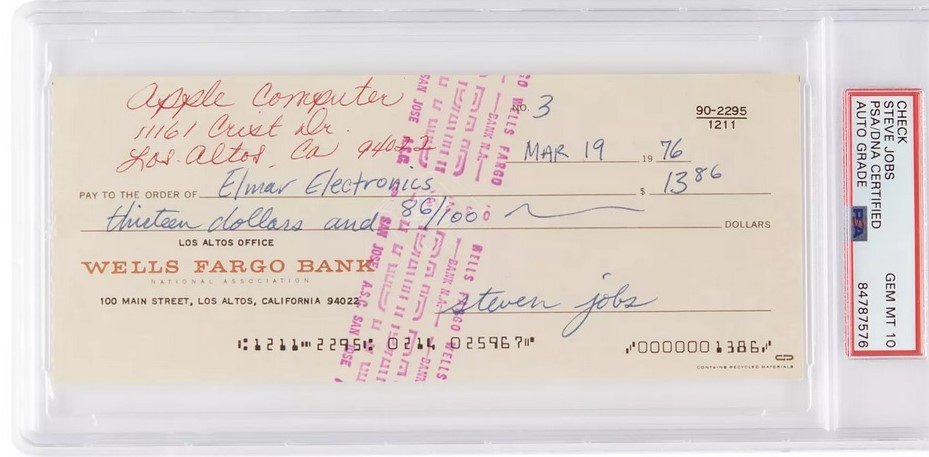 Apple Computer
11161 Crist Dr.
Los Altos, Ca 94022
NO. 3
90-2295
1211
MAR 19 1976
PAY TO THE ORDER OF Elmar Electronics $ 13 86
thirteen dollars and 86/100 DOLLARS
LOS ALTOS OFFICE
WELLS FARGO BANK
NATIONAL ASSOCIATION
100 MAIN STREET, LOS ALTOS, CALIFORNIA 94022
steven jobs
⑆1211⑉2295⑆ 0214 025967⑈
⑇0000001386⑇
CONTAINS RECYCLED MATERIALS
WELLS FARGO
BANK N.A.
SAN JOSE
A.S.C.
WELLS FARGO WELLS
BANK N.A.
BANK
SAN JOSE A.S.C. SAN JOSE
CHECK
STEVE JOBS
PSA/DNA CERTIFIED
AUTO GRADE
PSA
GEM MT 10
84787576